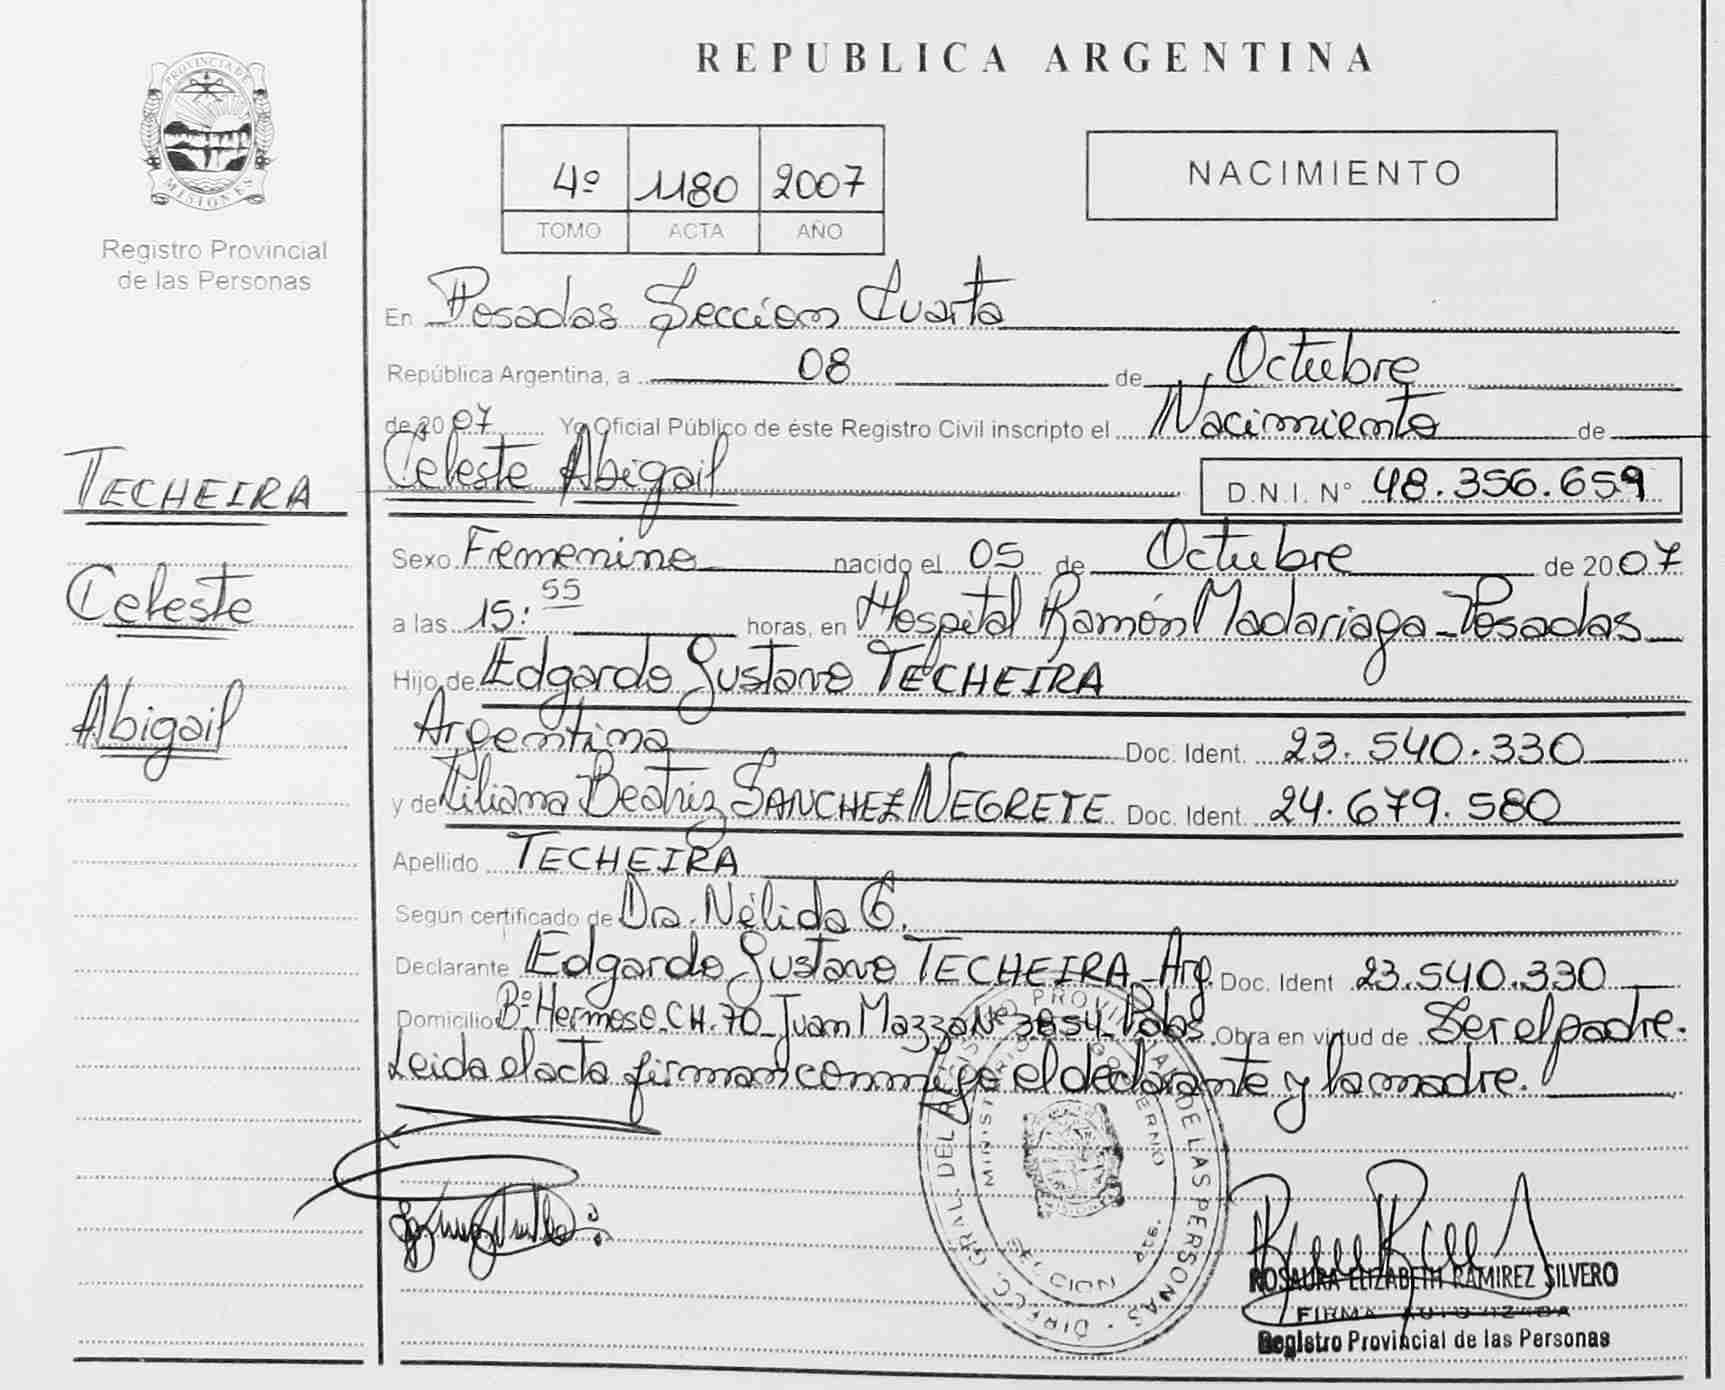 PROVINCIA DE
MISIONES
Registro Provincial
de las Personas
TECHEIRA
Celeste
Abigail
REPUBLICA ARGENTINA
4º 1180 2007
TOMO ACTA AÑO
NACIMIENTO
En Posadas Sección Cuarta
República Argentina, a 08 de Octubre
de 2007 Yo Oficial Público de éste Registro Civil inscripto el Nacimiento de
Celeste Abigail D.N.I. Nº 48.356.659
Sexo Femenino nacido el 05 de Octubre de 2007
a las 15:55 horas, en Hospital Ramón Madariaga - Posadas
Hijo de Edgardo Gustavo TECHEIRA
Argentina Doc. Ident. 23.540.330
y de Liliana Beatriz SANCHEZ NEGRETE Doc. Ident. 24.679.580
Apellido TECHEIRA
Según certificado de Dra. Nélida G.
Declarante Edgardo Gustavo TECHEIRA - Arg. Doc. Ident 23.540.330
Domicilio Bº Hermoso CH. 70 - Juan Mazza Nº 3854 - Pdas. Obra en virtud de Ser el padre.
Leida el acta firman conmigo el declarante y la madre.
DIRECC. GRAL. DEL REGISTRO PROVINCIAL DE LAS PERSONAS
MINISTERIO DE GOBIERNO
ROSAURA ELIZABETH RAMIREZ SILVERO
FIRMA AUTORIZADA
Registro Provincial de las Personas